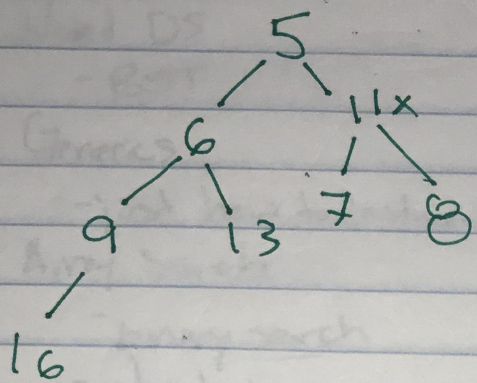 5
6 11x
9 13 7 8
16